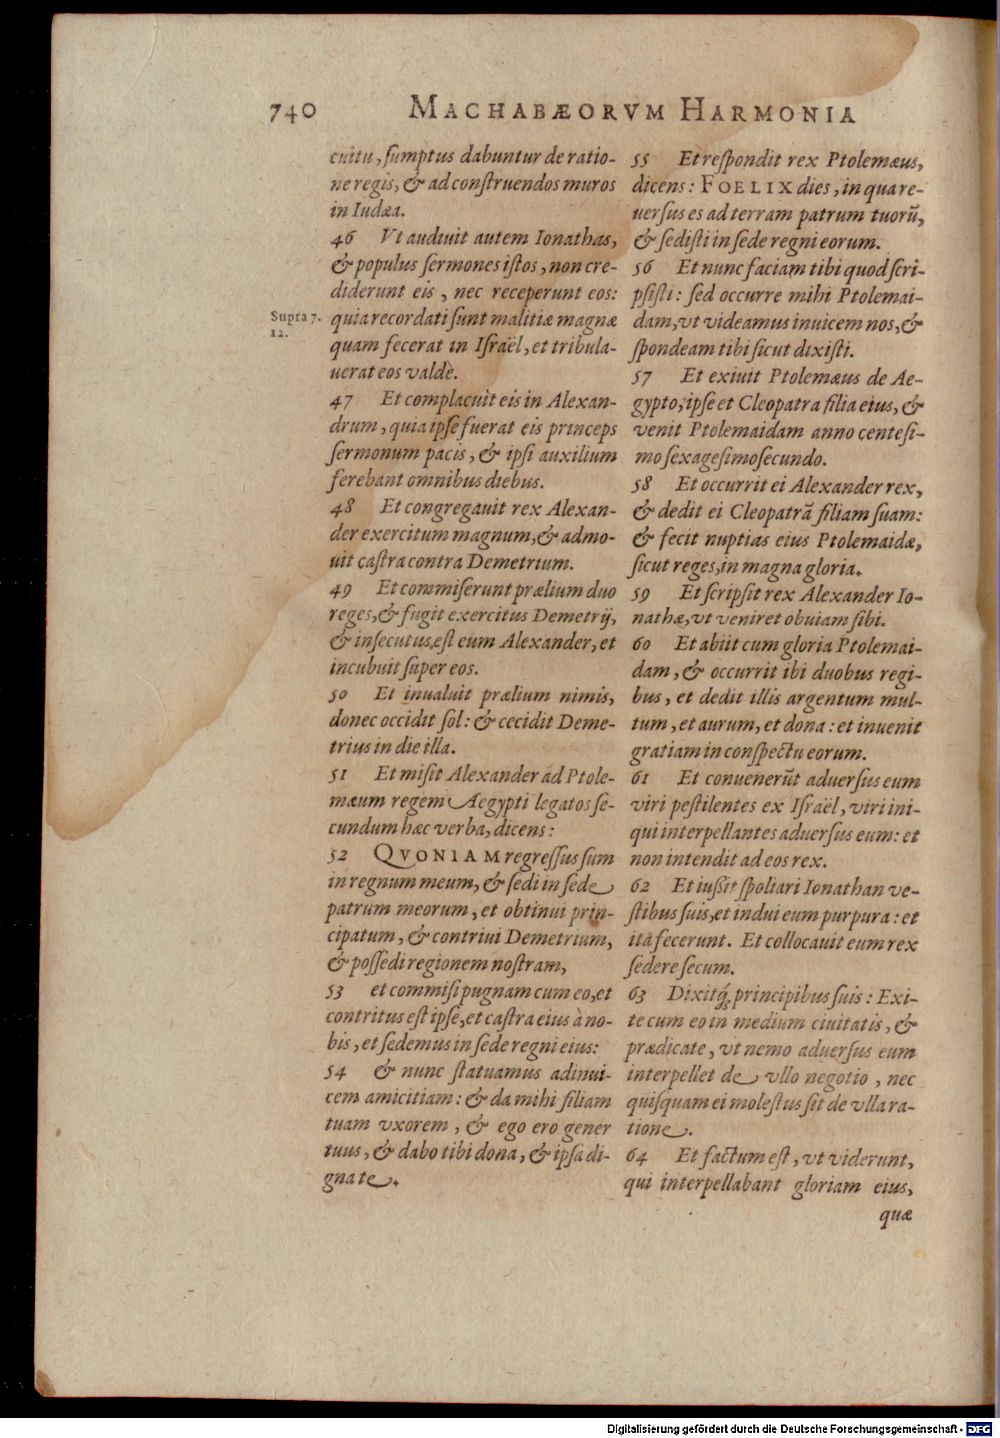 740 MACHABÆORVM HARMONIA
cuitu, ſumptus dabuntur de ratio-
ne regis, & ad conſtruendos muros
in Iudæa.
46 Vt audiuit autem Ionathas,
& populus ſermones iſtos, non cre-
diderunt eis, nec receperunt eos:
Supra 7.
12.
quia recordati ſunt malitiæ magnæ
quam fecerat in Iſraël, et tribula-
uerat eos valdè.
47 Et complacuit eis in Alexan-
drum, quia ipſe fuerat eis princeps
ſermonum pacis, & ipſi auxilium
ferebant omnibus diebus.
48 Et congregauit rex Alexan-
der exercitum magnum, & admo-
uit caſtra contra Demetrium.
49 Et commiſerunt prælium duo
reges, & fugit exercitus Demetrij,
& inſecutus eſt eum Alexander, et
incubuit ſuper eos.
50 Et inualuit prælium nimis,
donec occidit ſol: & cecidit Deme-
trius in die illa.
51 Et miſit Alexander ad Ptole-
mæum regem Aegypti legatos ſe-
cundum hæc verba, dicens:
52 QVONIAM regreſſus ſum
in regnum meum, & ſedi in ſede
patrum meorum, et obtinui prin-
cipatum, & contriui Demetrium,
& poſſedi regionem noſtram,
53 et commiſi pugnam cum eo, et
contritus eſt ipſe, et caſtra eius à no-
bis, et ſedemus in ſede regni eius:
54 & nunc ſtatuamus adinui-
cem amicitiam: & da mihi filiam
tuam vxorem, & ego ero gener
tuus, & dabo tibi dona, & ipſa di-
gnate.
55 Et reſpondit rex Ptolemæus,
dicens: FOELIX dies, in qua re-
uerſus es ad terram patrum tuorū,
& ſediſti in ſede regni eorum.
56 Et nunc faciam tibi quod ſcri-
pſiſti: ſed occurre mihi Ptolemai-
dam, vt videamus inuicem nos, &
ſpondeam tibi ſicut dixiſti.
57 Et exiuit Ptolemæus de Ae-
gypto, ipſe et Cleopatra filia eius, &
venit Ptolemaidam anno centeſi-
mo ſexageſimoſecundo.
58 Et occurrit ei Alexander rex,
& dedit ei Cleopatrā filiam ſuam:
& fecit nuptias eius Ptolemaidæ,
ſicut reges, in magna gloria.
59 Et ſcripſit rex Alexander Io-
nathæ, vt veniret obuiam ſibi.
60 Et abiit cum gloria Ptolemai-
dam, & occurrit ibi duobus regi-
bus, et dedit illis argentum mul-
tum, et aurum, et dona: et inuenit
gratiam in conſpectu eorum.
61 Et conuenerūt aduerſus eum
viri peſtilentes ex Iſraël, viri ini-
qui interpellantes aduerſus eum: et
non intendit ad eos rex.
62 Et iuſsit ſpoliari Ionathan ve-
ſtibus ſuis, et indui eum purpura: et
ità fecerunt. Et collocauit eum rex
ſedere ſecum.
63 Dixitq́; principibus ſuis: Exi-
te cum eo in medium ciuitatis, &
prædicate, vt nemo aduerſus eum
interpellet de vllo negotio, nec
quiſquam ei moleſtus ſit de vlla ra-
tione.
64 Et factum eſt, vt viderunt,
qui interpellabant gloriam eius,
quæ
Digitalisierung gefördert durch die Deutsche Forschungsgemeinschaft - DFG